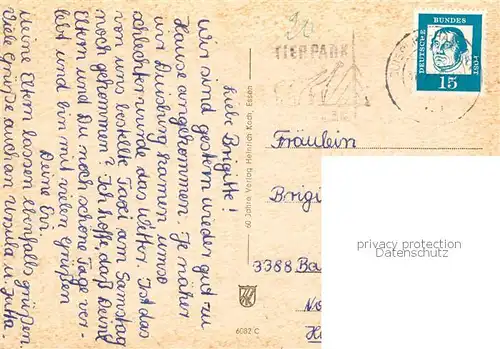 Liebe Brigitte!
Wir sind gestern wieder gut zu
Hause angekommen. Je näher
wir Duisburg kamen umso
schlechter wurde das Wetter. Ist das
von uns bestellte Taxi am Samstag
noch gekommen? Ich hoffe, daß Deine
Eltern und Du noch schöne Tage ver-
lebt und bin mit vielen Grüßen
Deine Evi
Meine Eltern lassen ebenfalls grüßen.
Viele Grüße auch an Ursula u. Jutta.
60 Jahre Verlag Heinrich Koch, Essen
6082 C
TIERPARK
DEUTSCHE BUNDESPOST
15
Fräulein
Brigi
3388 Ba
privacy protection
Datenschutz